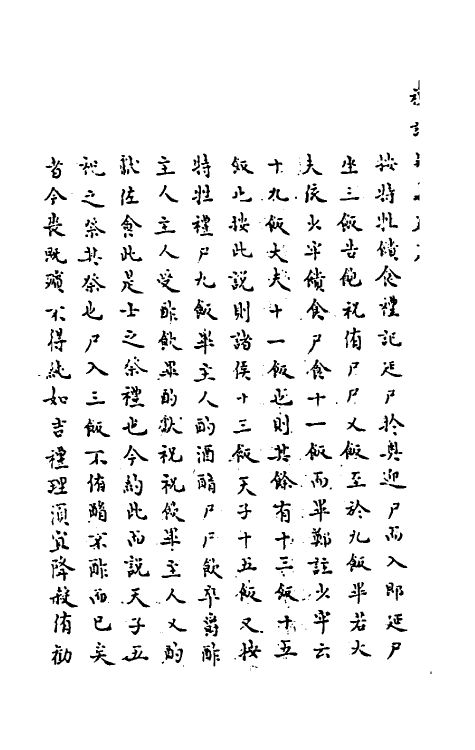 按特牲饋食禮記延尸於奧迎尸而入即延尸
坐三飯告飽祝侑尸尸又飯至於九飯畢若大
夫依少牢饋食尸食十一飯而畢鄭註少牢云
十九飯大夫十一飯也則其餘有十三飯十五
飯也按此說則諸侯十三飯天子十五飯又按
特牲禮尸九飯畢主人酌酒酳尸尸飲卒爵酢
主人主人受酢飲畢酌獻祝祝飲畢主人又酌
獻佐食此是士之祭禮也今約此而說天子五
祀之祭其祭也尸入三飯不侑酳不酢而已矣
者今喪既殯不得純如吉禮理須宜降殺侑勸